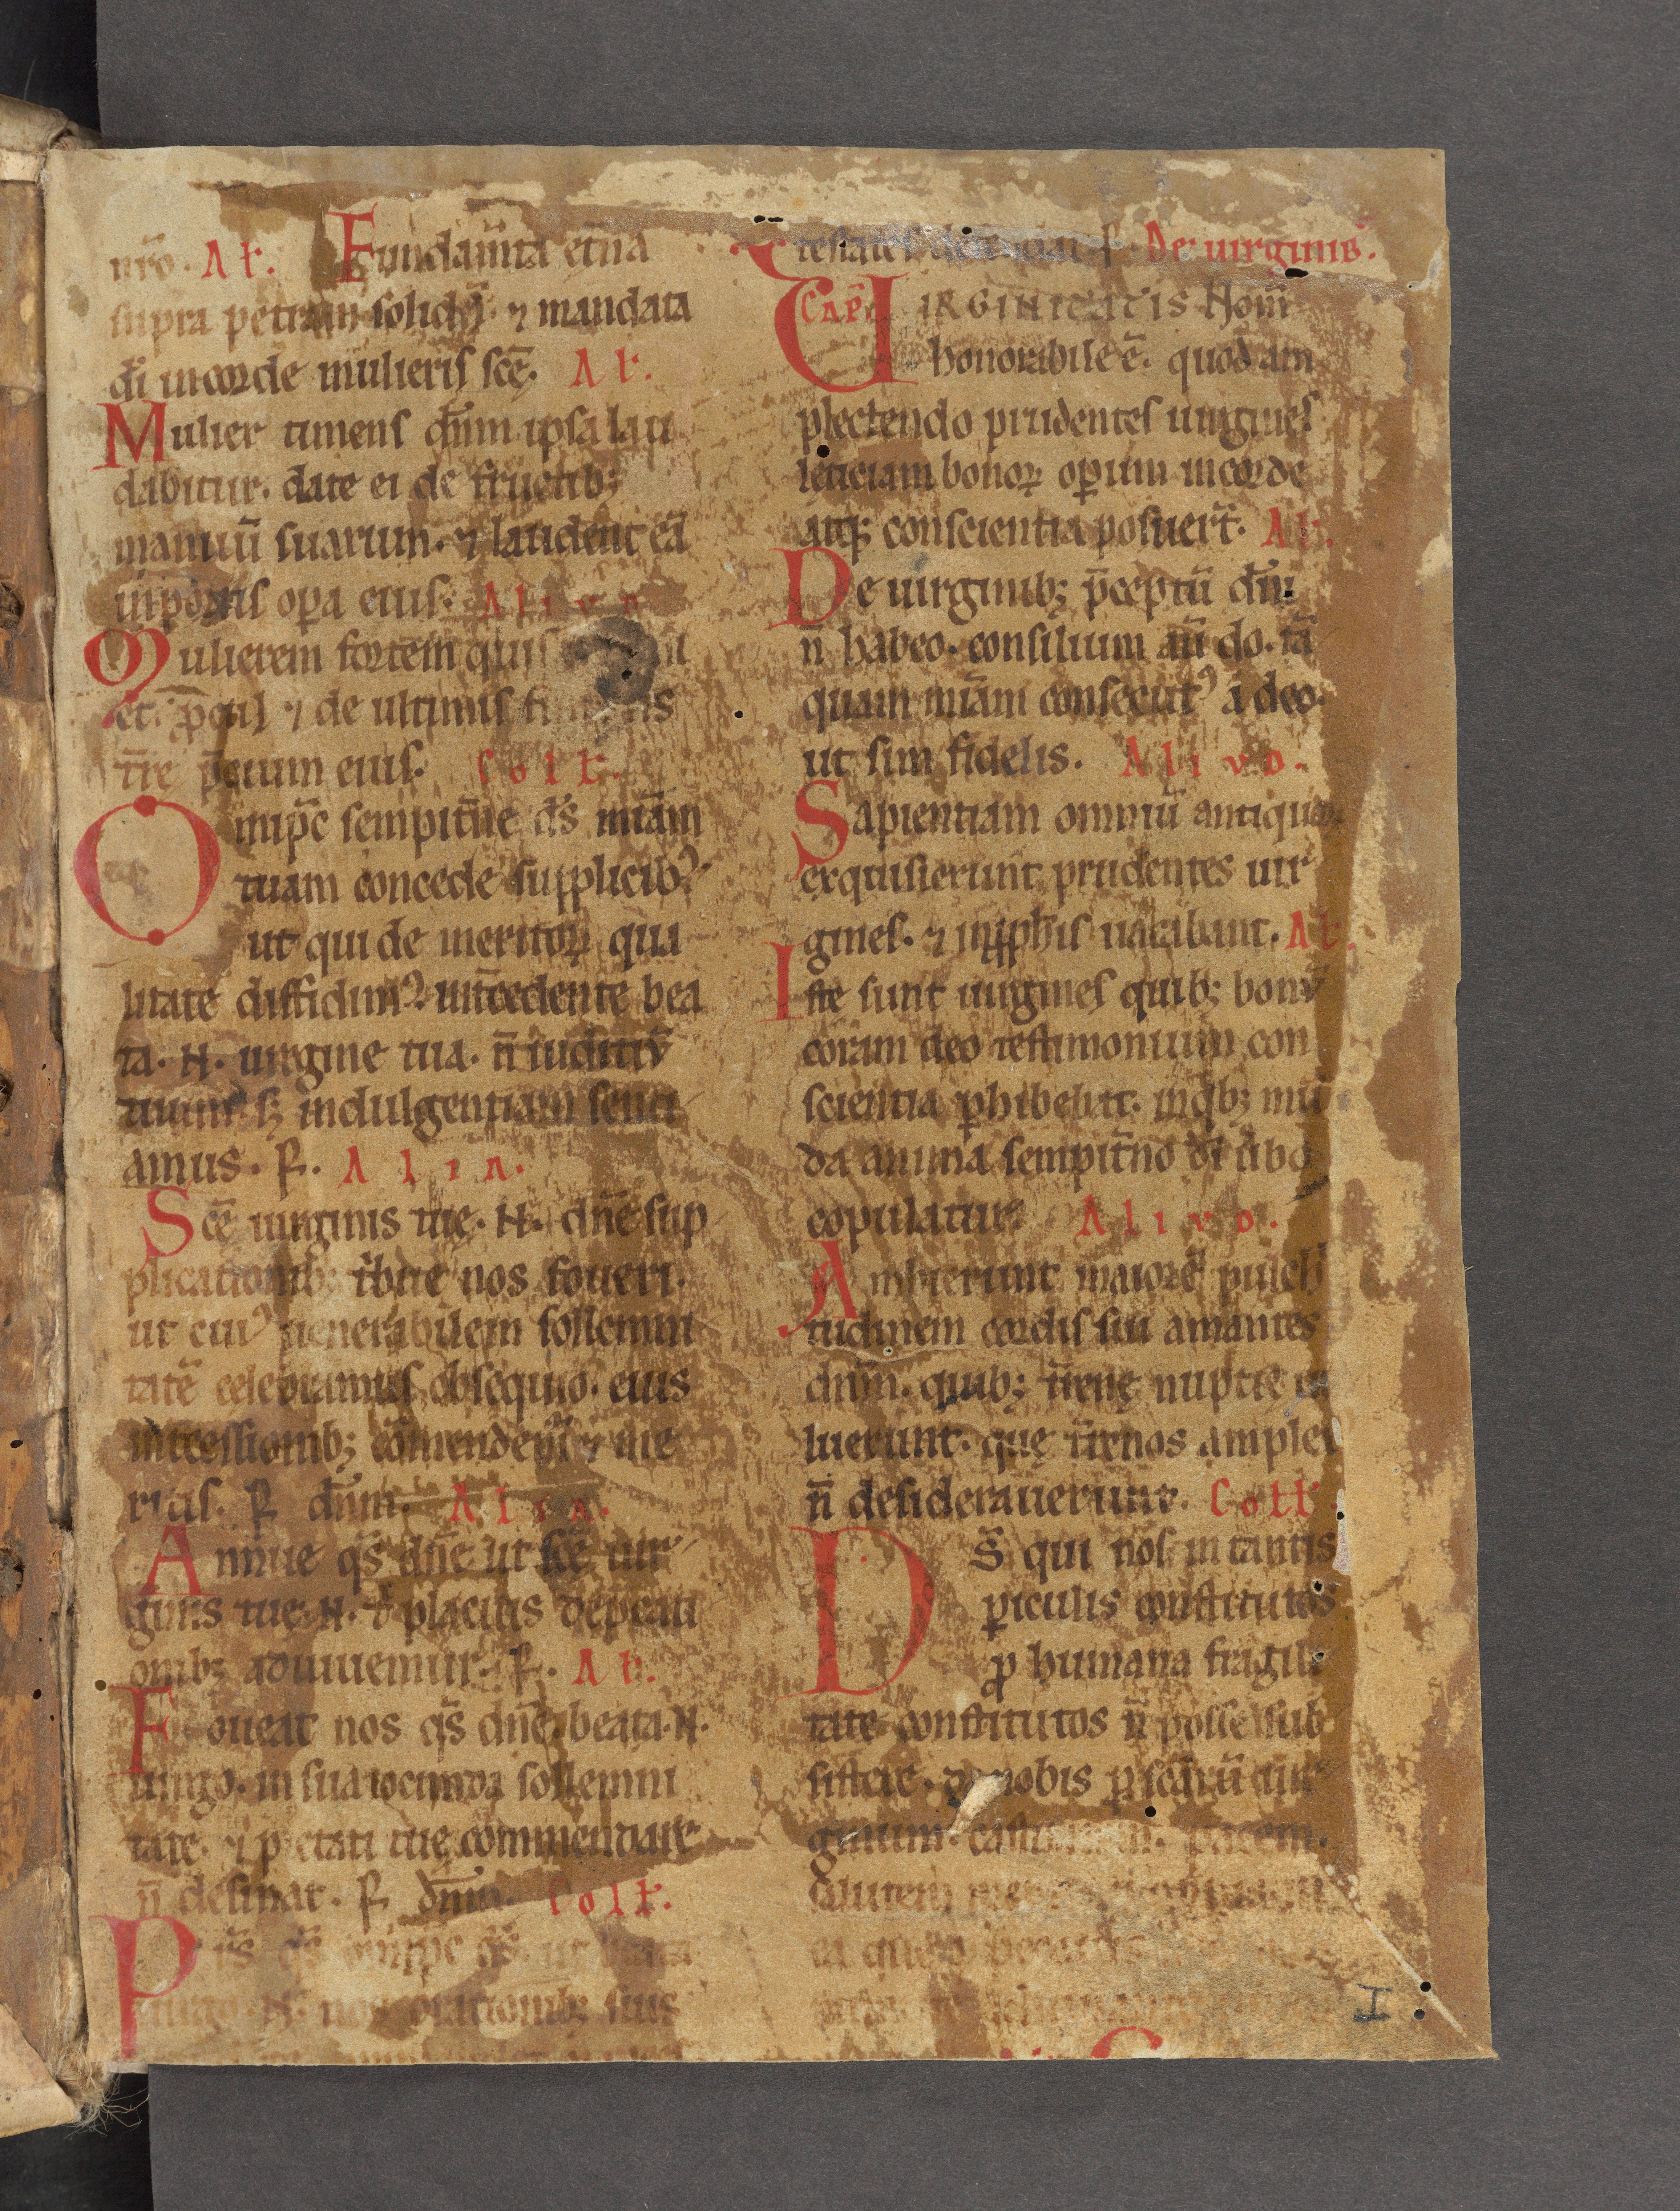 nr̄o. Al̵. Fundam̄ta et̄na
supra petram solidā. ⁊ mandata
dī in corde mulieris sc̄ę. Al̵.
Mulier timens dn̄m ipsa lau
dabitur. date ei de fructib;
manuū suarum. ⁊ laudent eā
in portis oꝑa eius. Alivd
Mulierem fortem quis
et. ꝓcul ⁊ de ultimis
tr̄re p̄cium eius. Coll̵.
Omnip̄c sempit̄ne ds̄ mīam
tuam concede supplicibꝰ
ut qui de meritoꝝ qua
litate diffidimꝰ. int̄cedente bea
ta. N. uirgine tua. n̄ iudiciū
tuum. sꝫ indulgentiam senti
amus. P. Alia.
Sc̄ę uirginis tuę. N. dn̄e sup
plicationib; t̄bue nos foueri.
ut cuiꝰ uenerabilem sollemni
tatē celebramus obsequio. eius
int̄cessionib; com̄endem̄r ⁊ me
ritis. P dn̄m. Alia.
Annue qs̄ dn̄e ut sc̄ę uir
ginis tuę. N. t̄ placitis dep̄cati
onib; adiuuemur. P. Al̵.
Foueat nos qs̄ dn̄e. beata. N.
uirgo. in sua iocunda sollemni
tate. ⁊ pietati tuę commendare
n̄ desinat. P. dn̄m. Coll̵.
P̄s qs̄ omnip̄c ds̄. ut beata
uirgo. N. nos orationib; suis
P. De uirginib.
Cap̄l VIRGINITATIS Hom̄
honorabile ē. quod am
plectendo prudentes uirgines
leticiam bonoꝝ oꝑum in corde
atq; conscientia posuer̄t. Al̵.
De uirginib; p̄ceptū dn̄i
n̄ habeo. consilium aū do. tā
quam mīam consecutꝰ a deo.
ut sim fidelis. Alivd.
Sapientiam omniū antiquoꝝ
exquisierunt prudentes uir
gines. ⁊ in ꝓphis uacabant. Al̵.
Iste sunt uirgines quib; bonū
coram deo testimonium con
scientia ꝑhibebat. in qb; mū
da anima sempit̄no dī ūbo
copulatur. Alivd.
Ambierunt maiorē pulch
tudinem cordis sui amantes
dn̄m. quib; tr̄enę nuptie
luerunt. quę tr̄enos amplex
n̄ desiderauerunt. Coll̵.
Ds̄ qui nos in tantis
ꝑiculis constitutos
ꝓ humana fragili
tate constitutos n̄ posse sub
sistere. da nobis ꝑ scarū uir
ginum.
I